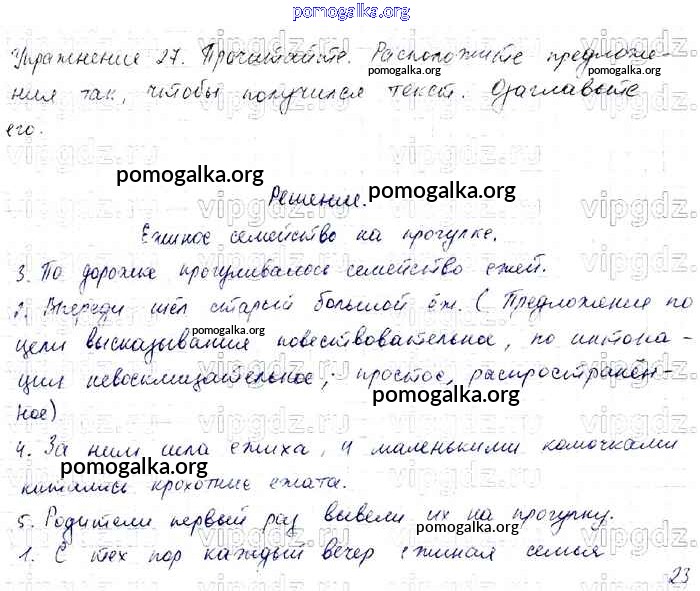 pomogalka.org
Упражнение 27. Прочитайте. Расположите предложе-
ния так, чтобы получился текст. Озаглавьте
его.
Решение.
Ежиное семейство на прогулке.
3. По дорожке прогуливалось семейство ежей.
2. Впереди шёл старый большой ёж. (Предложение по
цели высказывания повествовательное, по интона-
ции невосклицательное, простое, распространён-
ное)
4. За ним шла ежиха, и маленькими комочками
катались крохотные ежата.
5. Родители первый раз вывели их на прогулку.
1. С тех пор каждый вечер ежиная семья
23